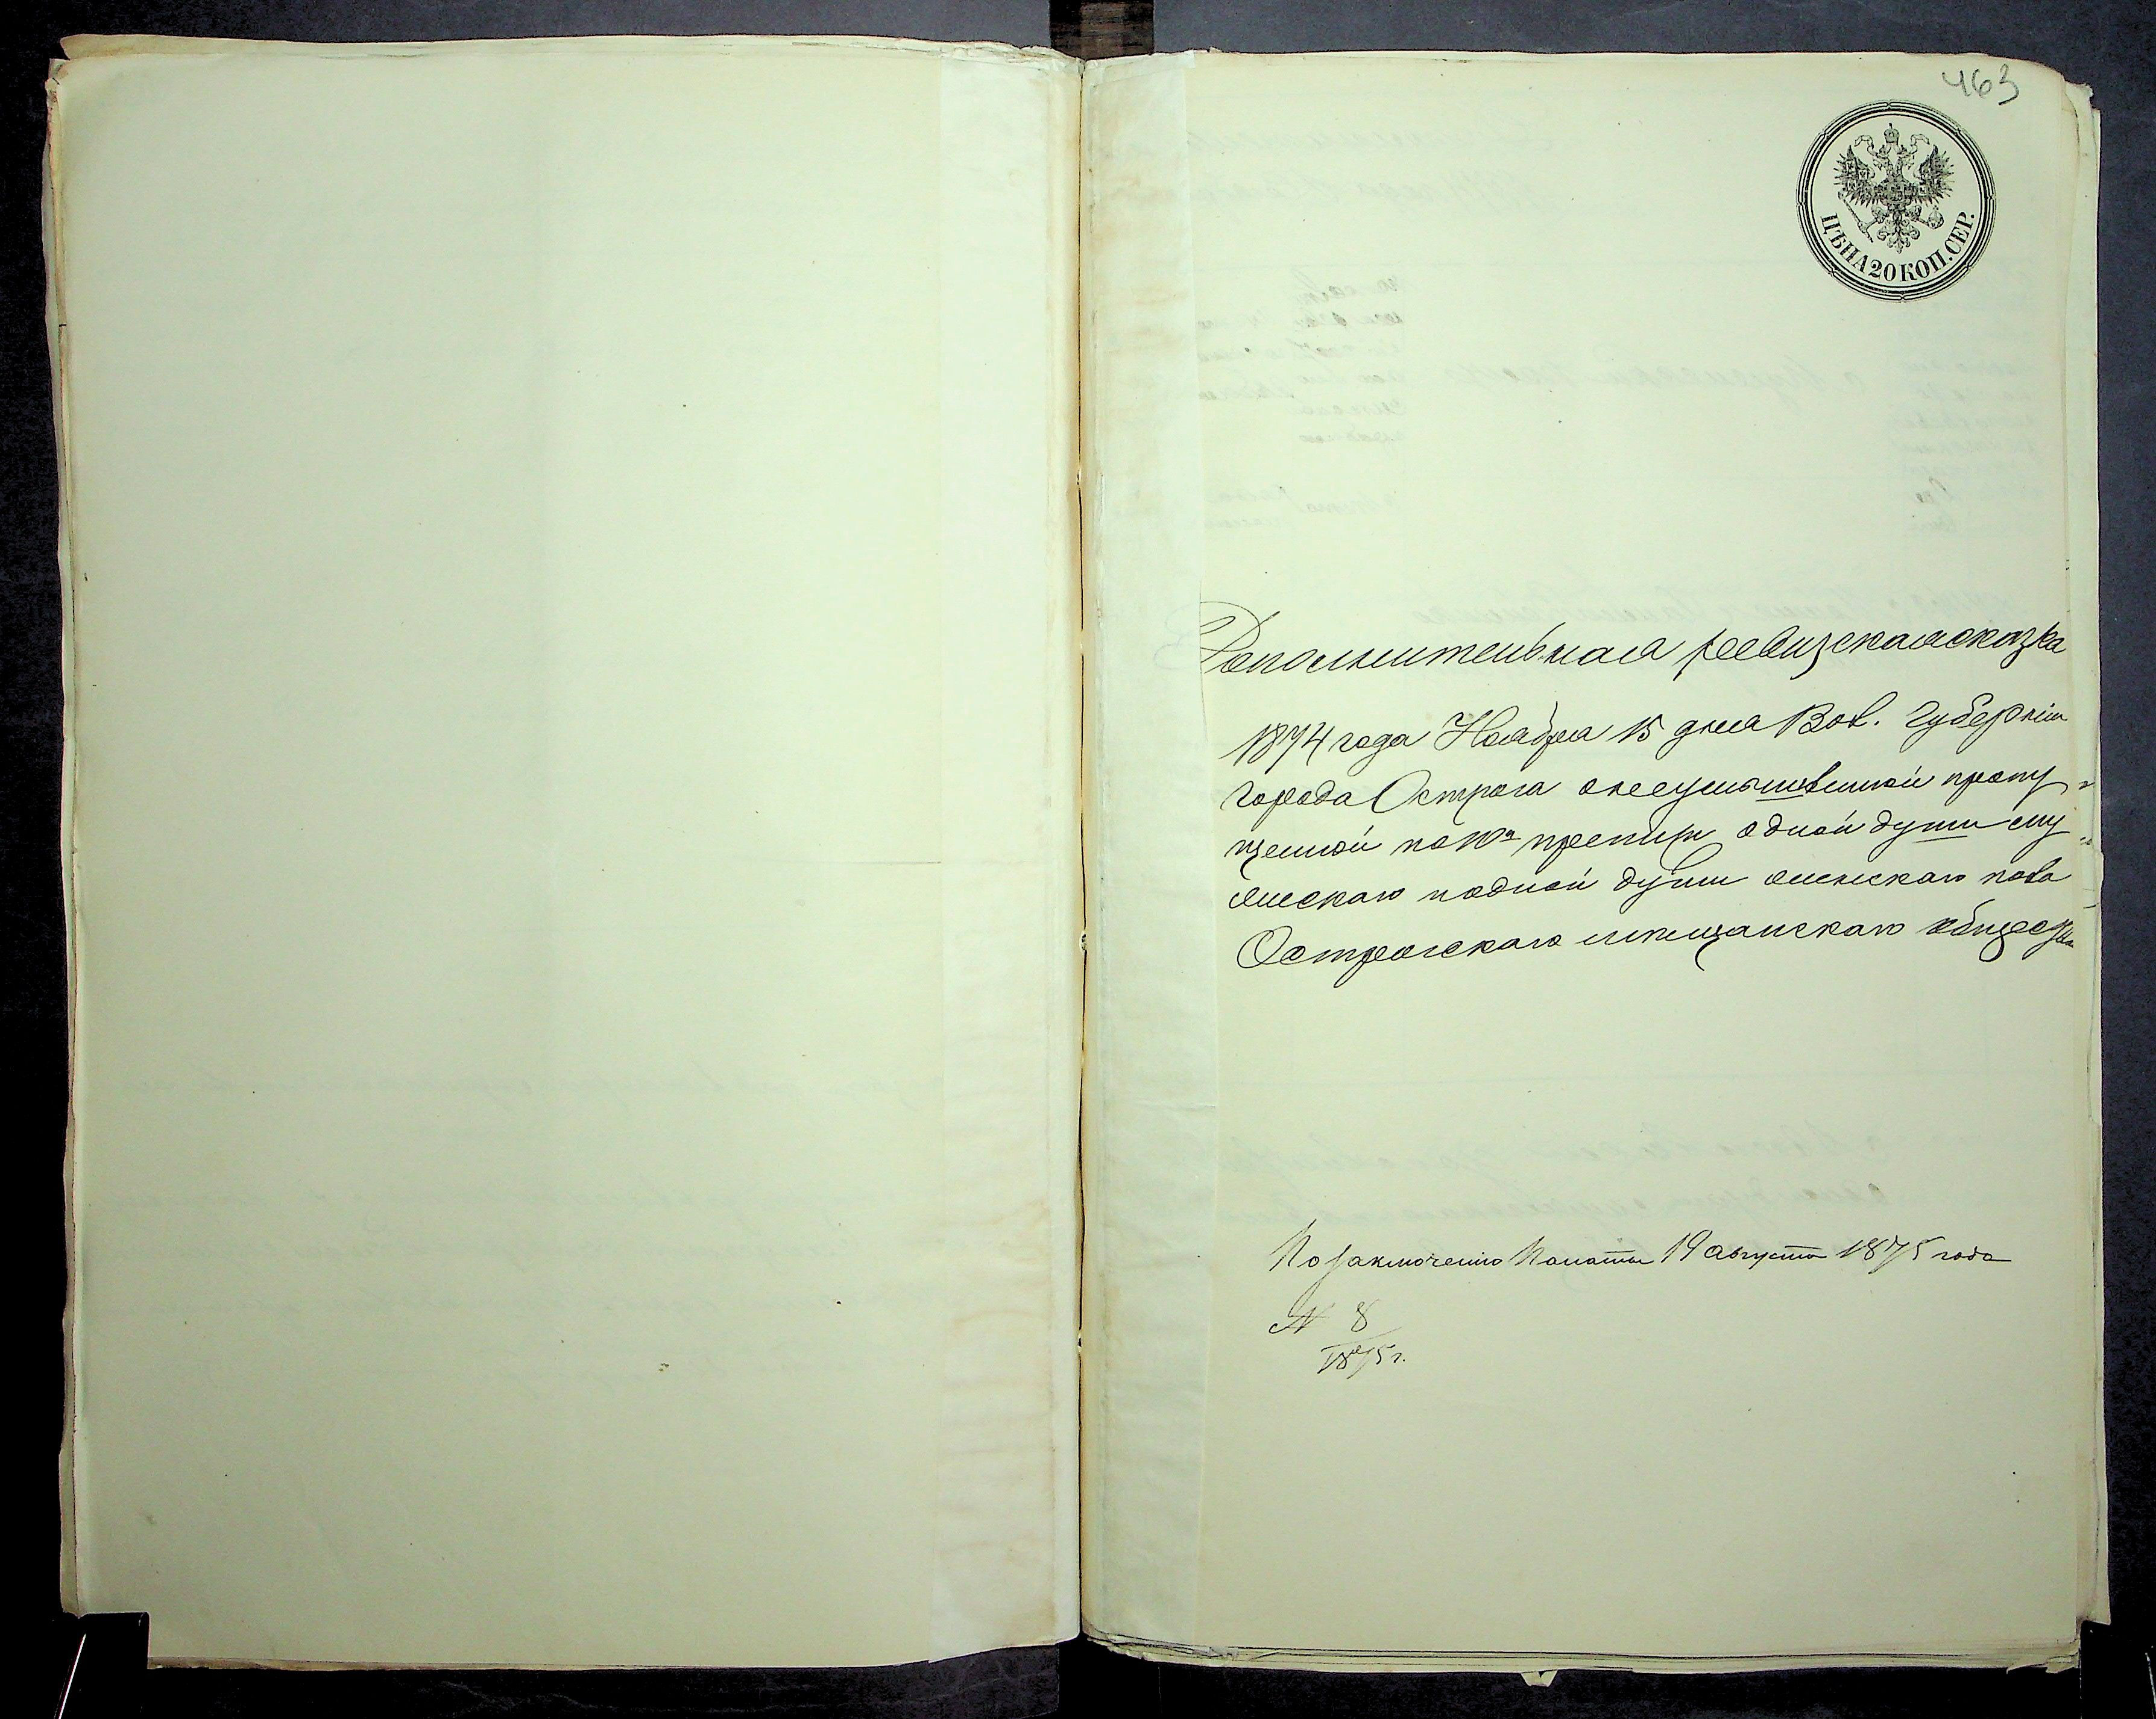 463
ЦѢНА 20 КОП. СЕР.
Дополнительная ревизская сказка
1874 года Ноября 15 дня Вол. Губерніи
города Острога о неумышленной пропу-
щенной по 10й одной души му-
жескаго и одной души женскаго пола
Острогскаго мѣщанскаго общества
По заключенію Палаты 19 августа 1875 года
№ 8
1875 г.